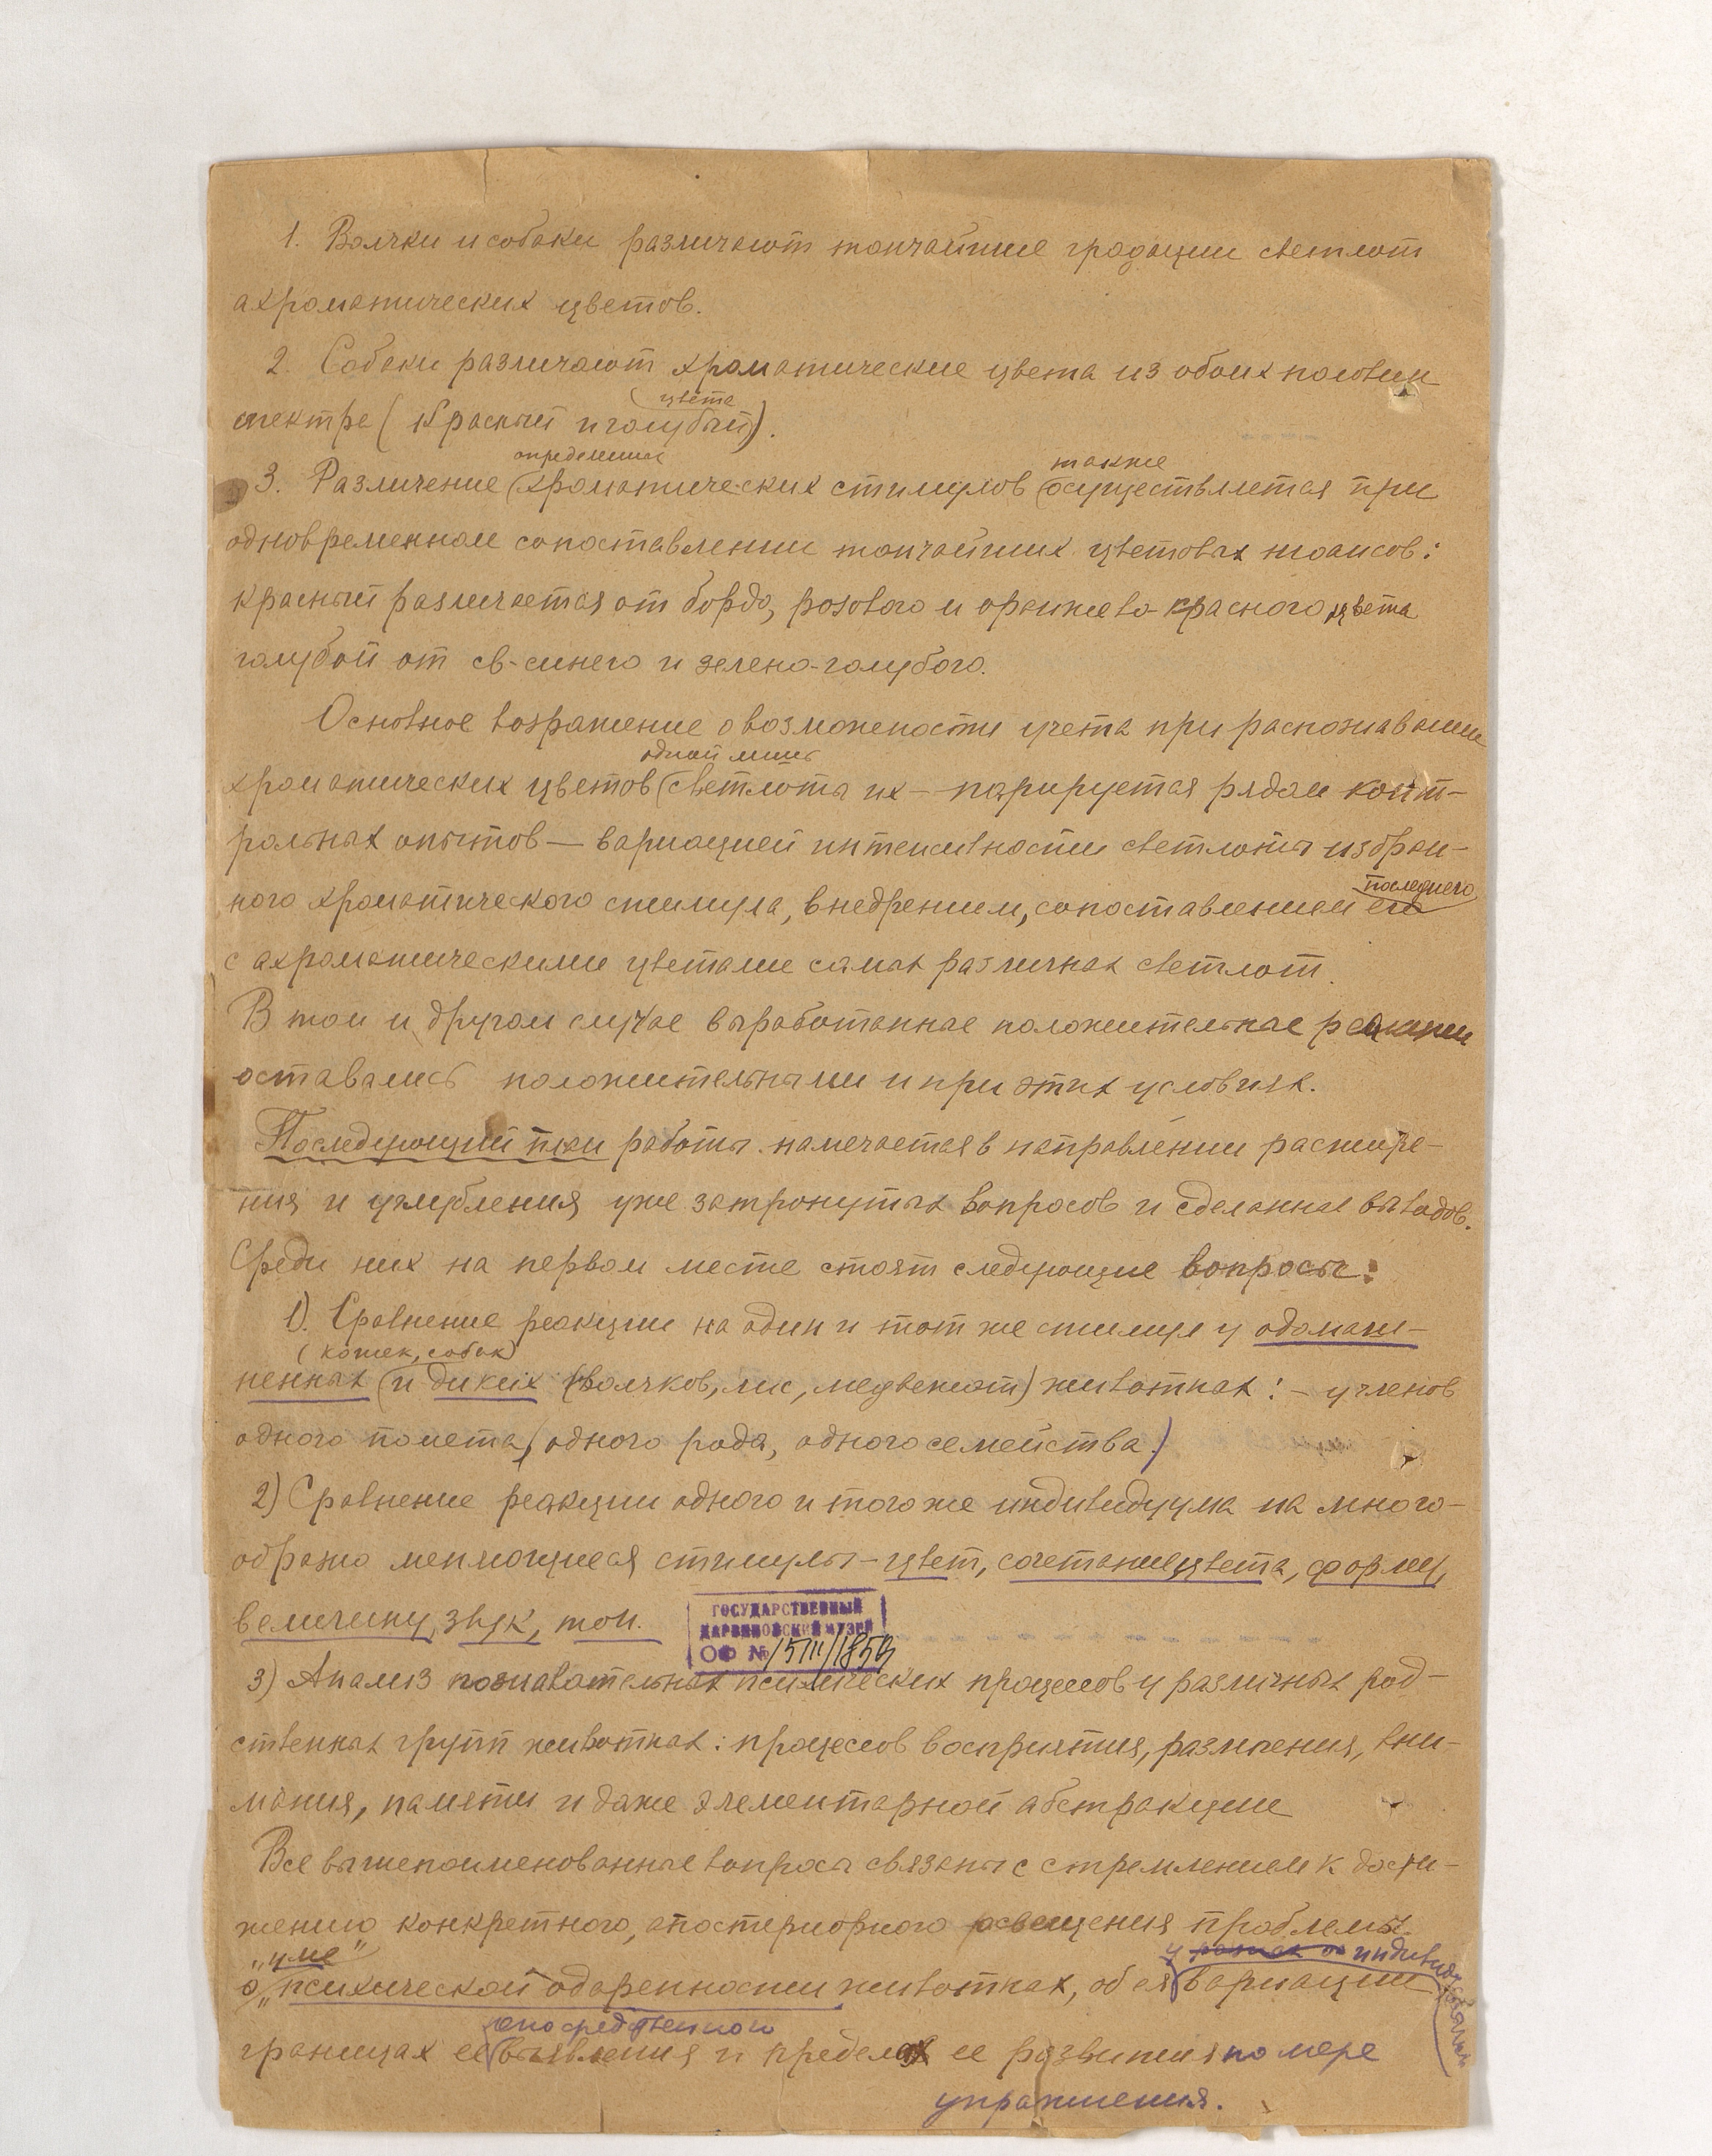 1. Волчки и собаки различают тончайшие градации светлот
ахроматических цветов.
2. Собаки различают хроматические цвета из обоих половин
цвета
спектра (красный и голубой).
определенных также
3. Различение хроматических стимулов осуществляется при
одновременном сопоставлении тончайших цветовых нюансов:
красный различается от бордо, розового и оранжево-красного цвета
голубой от св-синего и зелено-голубого.
Основное возражение о возможности учета при распознавании
одной лишь
хроматических цветов светлоты их — парируется рядом конт-
рольных опытов — вариацией интенсивности светлоты избран-
последнего
ного хроматического стимула, внедрением, сопоставлением его
с ахроматическими цветами самых различных светлот.
В том и другом случае выработанные положительные реакции
оставались положительными и при этих условиях.
Последующий план работы намечается в направлении расшире-
ния и углубления уже затронутых вопросов и сделанных выводов.
Среди них на первом месте стоят следующие вопросы:
1). Сравнение реакции на один и тот же стимул у одомаш-
(кошек, собак)
ненных и диких (волчков, лис, медвежат) животных: - у членов
одного помета, (одного рода, одного семейства.)
2) Сравнение реакции одного и того же индивидуума на много-
образно меняющиеся стимулы - цвет, сочетание цвета, форму,
величину, звук, тон.
ГОСУДАРСТВЕННЫЙ
ДАРВИНОВСКИЙ МУЗЕЙ
ОФ №
3) Анализ познавательных психических процессов у различных род-
ственных групп животных: процессов восприятия, различения, вни-
мания, памяти и даже элементарной абстракции
Все вышепоименованные вопросы связаны с стремлением к дости-
жению конкретного, апостериорного освещения проблемы
"уме" у индивидуальных
о „психической одаренности животных, об ея вариации
опосредственного
границах ее выявления и пределах ее развития по мере
упражнения.